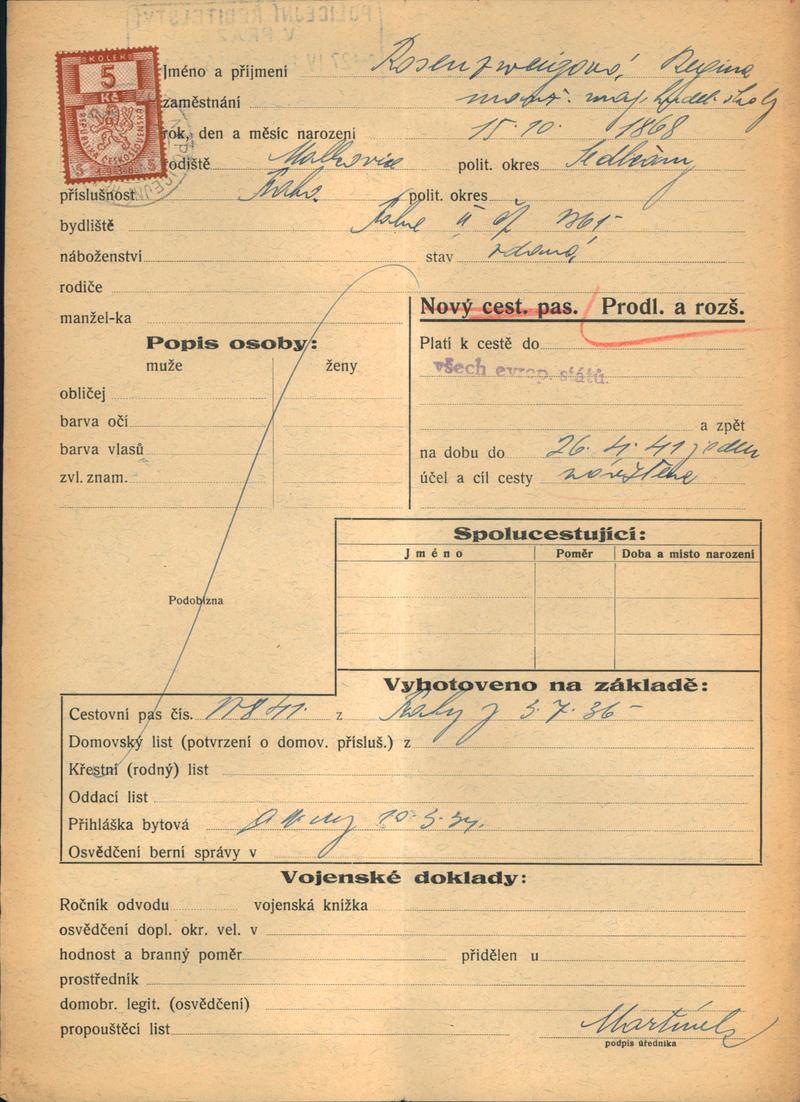 POLICEJNÍ ŘEDITELSTVÍ
V PRAZE
KOLEK
5
Kč
REPUBLIKA ČESKOSLOVENSKÁ
5 1938 5
Jméno a příjmení Rosenzweigová, Regina
zaměstnání manž. maj. hudeb. školy
rok, den a měsíc narození 15. 10. 1868
rodiště Malkovice polit. okres Sedlčany
příslušnost Praha polit. okres
bydliště II čp
náboženství stav vdaná
rodiče
manžel-ka
Nový cest. pas. Prodl. a rozš.
Popis osoby:
muže ženy
obličej
barva očí
barva vlasů
zvl. znam.
Platí k cestě do
všech evrop. států.
a zpět
na dobu do 26. 4. 41
účel a cíl cesty návštěva
Spolucestující:
Jméno Poměr Doba a místo narození
Podobizna
Vyhotoveno na základě:
Cestovní pas čís. z Prahy z 3. 7. 36
Domovský list (potvrzení o domov. přísluš.) z
Křestní (rodný) list
Oddací list
Přihláška bytová
Osvědčení berní správy v
Vojenské doklady:
Ročník odvodu vojenská knížka
osvědčení dopl. okr. vel. v
hodnost a branný poměr přidělen u
prostředník
domobr. legit. (osvědčení)
propouštěcí list
Martínek
podpis úředníka